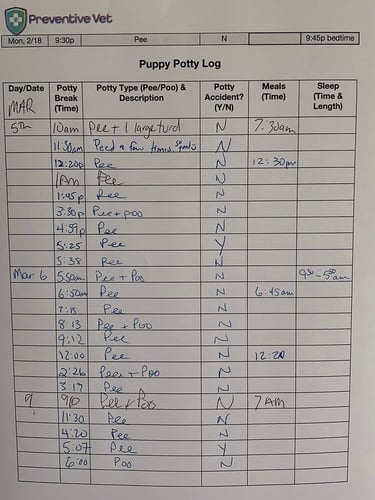 Preventive Vet
Mon, 2/18 9:30p Pee N 9:45p bedtime
Puppy Potty Log
Day/Date Potty Break (Time) Potty Type (Pee/Poo) & Description Potty Accident? (Y/N) Meals (Time) Sleep (Time & Length)
MAR
5th 10am Pee + 1 large turd N 7:30am
11:30am Peed a few times. N
12:20p Pee N 12:30pm
1Am Pee N
1:45p Pee N
3:30p Pee + poo N
4:59p Pee N
5:25 Pee Y
5:38 Pee N
Mar 6 5:50am Pee + Poo N
6:50am Pee N 6:45am
7:15 Pee N
8:13 Pee + Poo N
9:12 Pee N
12:00 Pee N 12:20
2:26 Pee + Poo N
3:17 Pee N
9 Pee + Poo N 7 AM
11:30 Pee N
4:20 Pee N
5:07 Pee Y
6:00 Poo N